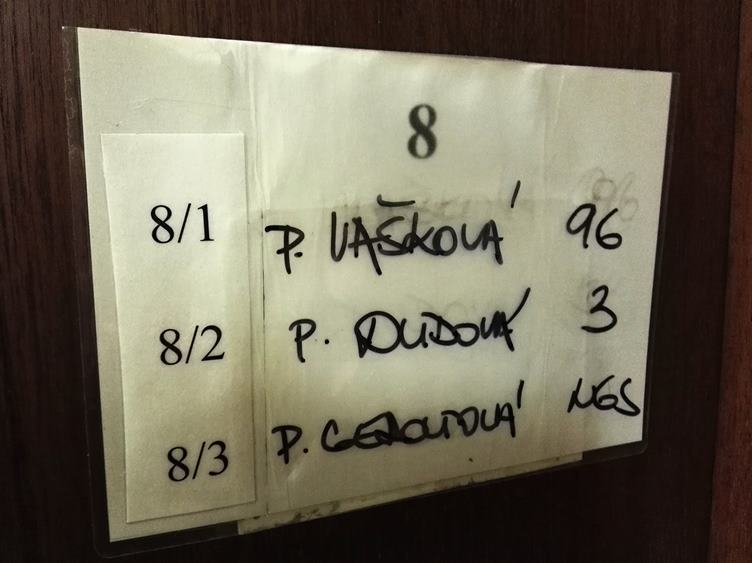 8
8/1 P. VAŠKOVÁ 96
8/2 P. DUDOVÁ 3
8/3 P.